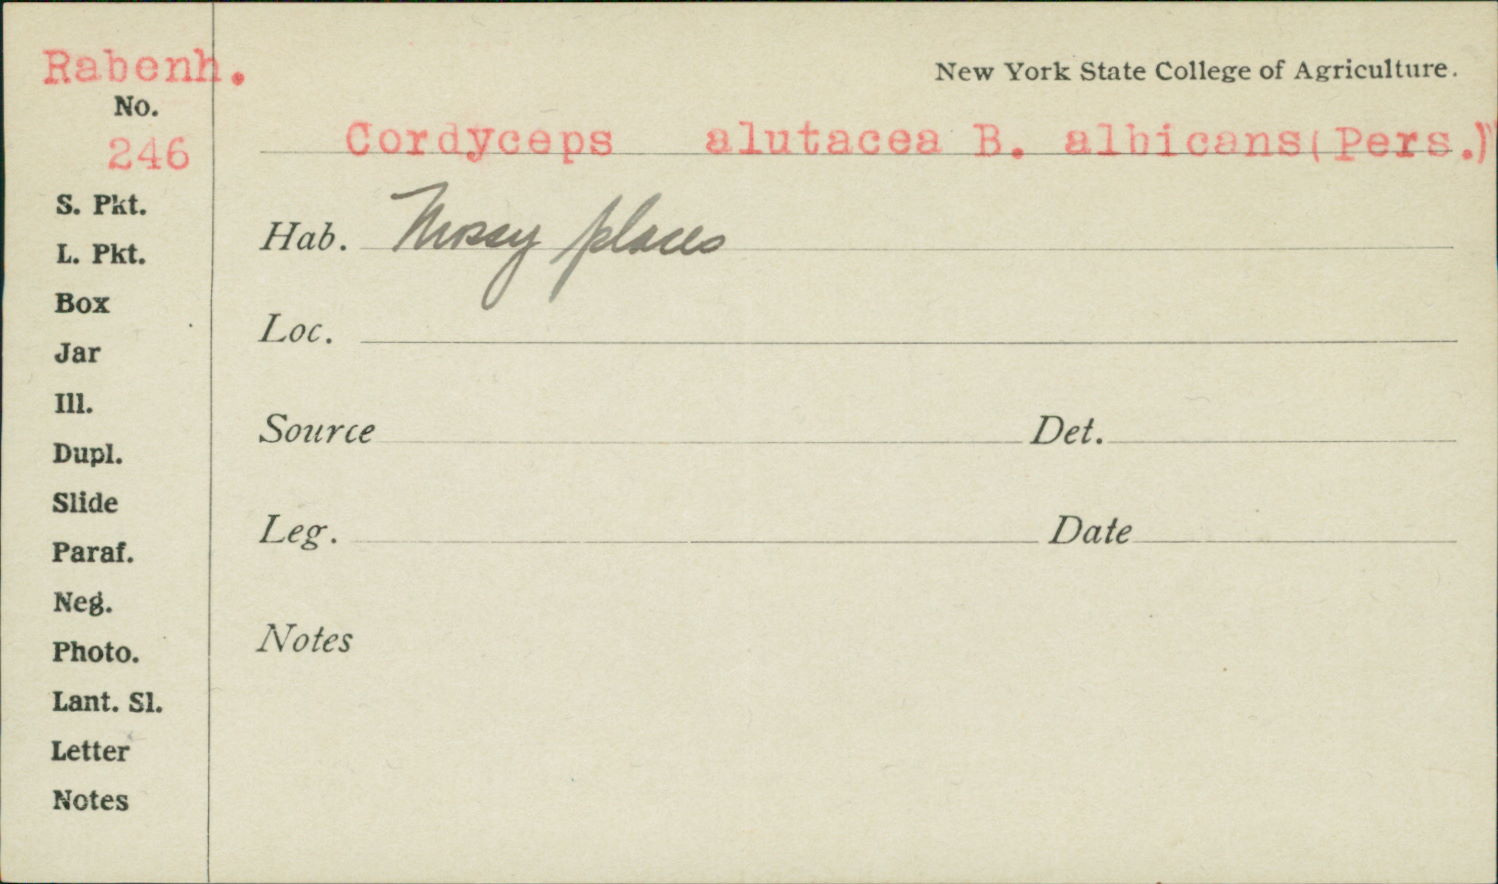 Rabenh.
No.
246
New York State College of Agriculture.
Cordyceps alutacea B. albicans(Pers.)
Hab. Mossy places
Loc.
Source
Det.
Leg.
Date
Notes
S. Pkt.
L. Pkt.
Box
Jar
Ill.
Dupl.
Slide
Paraf.
Neg.
Photo.
Lant. Sl.
Letter
Notes